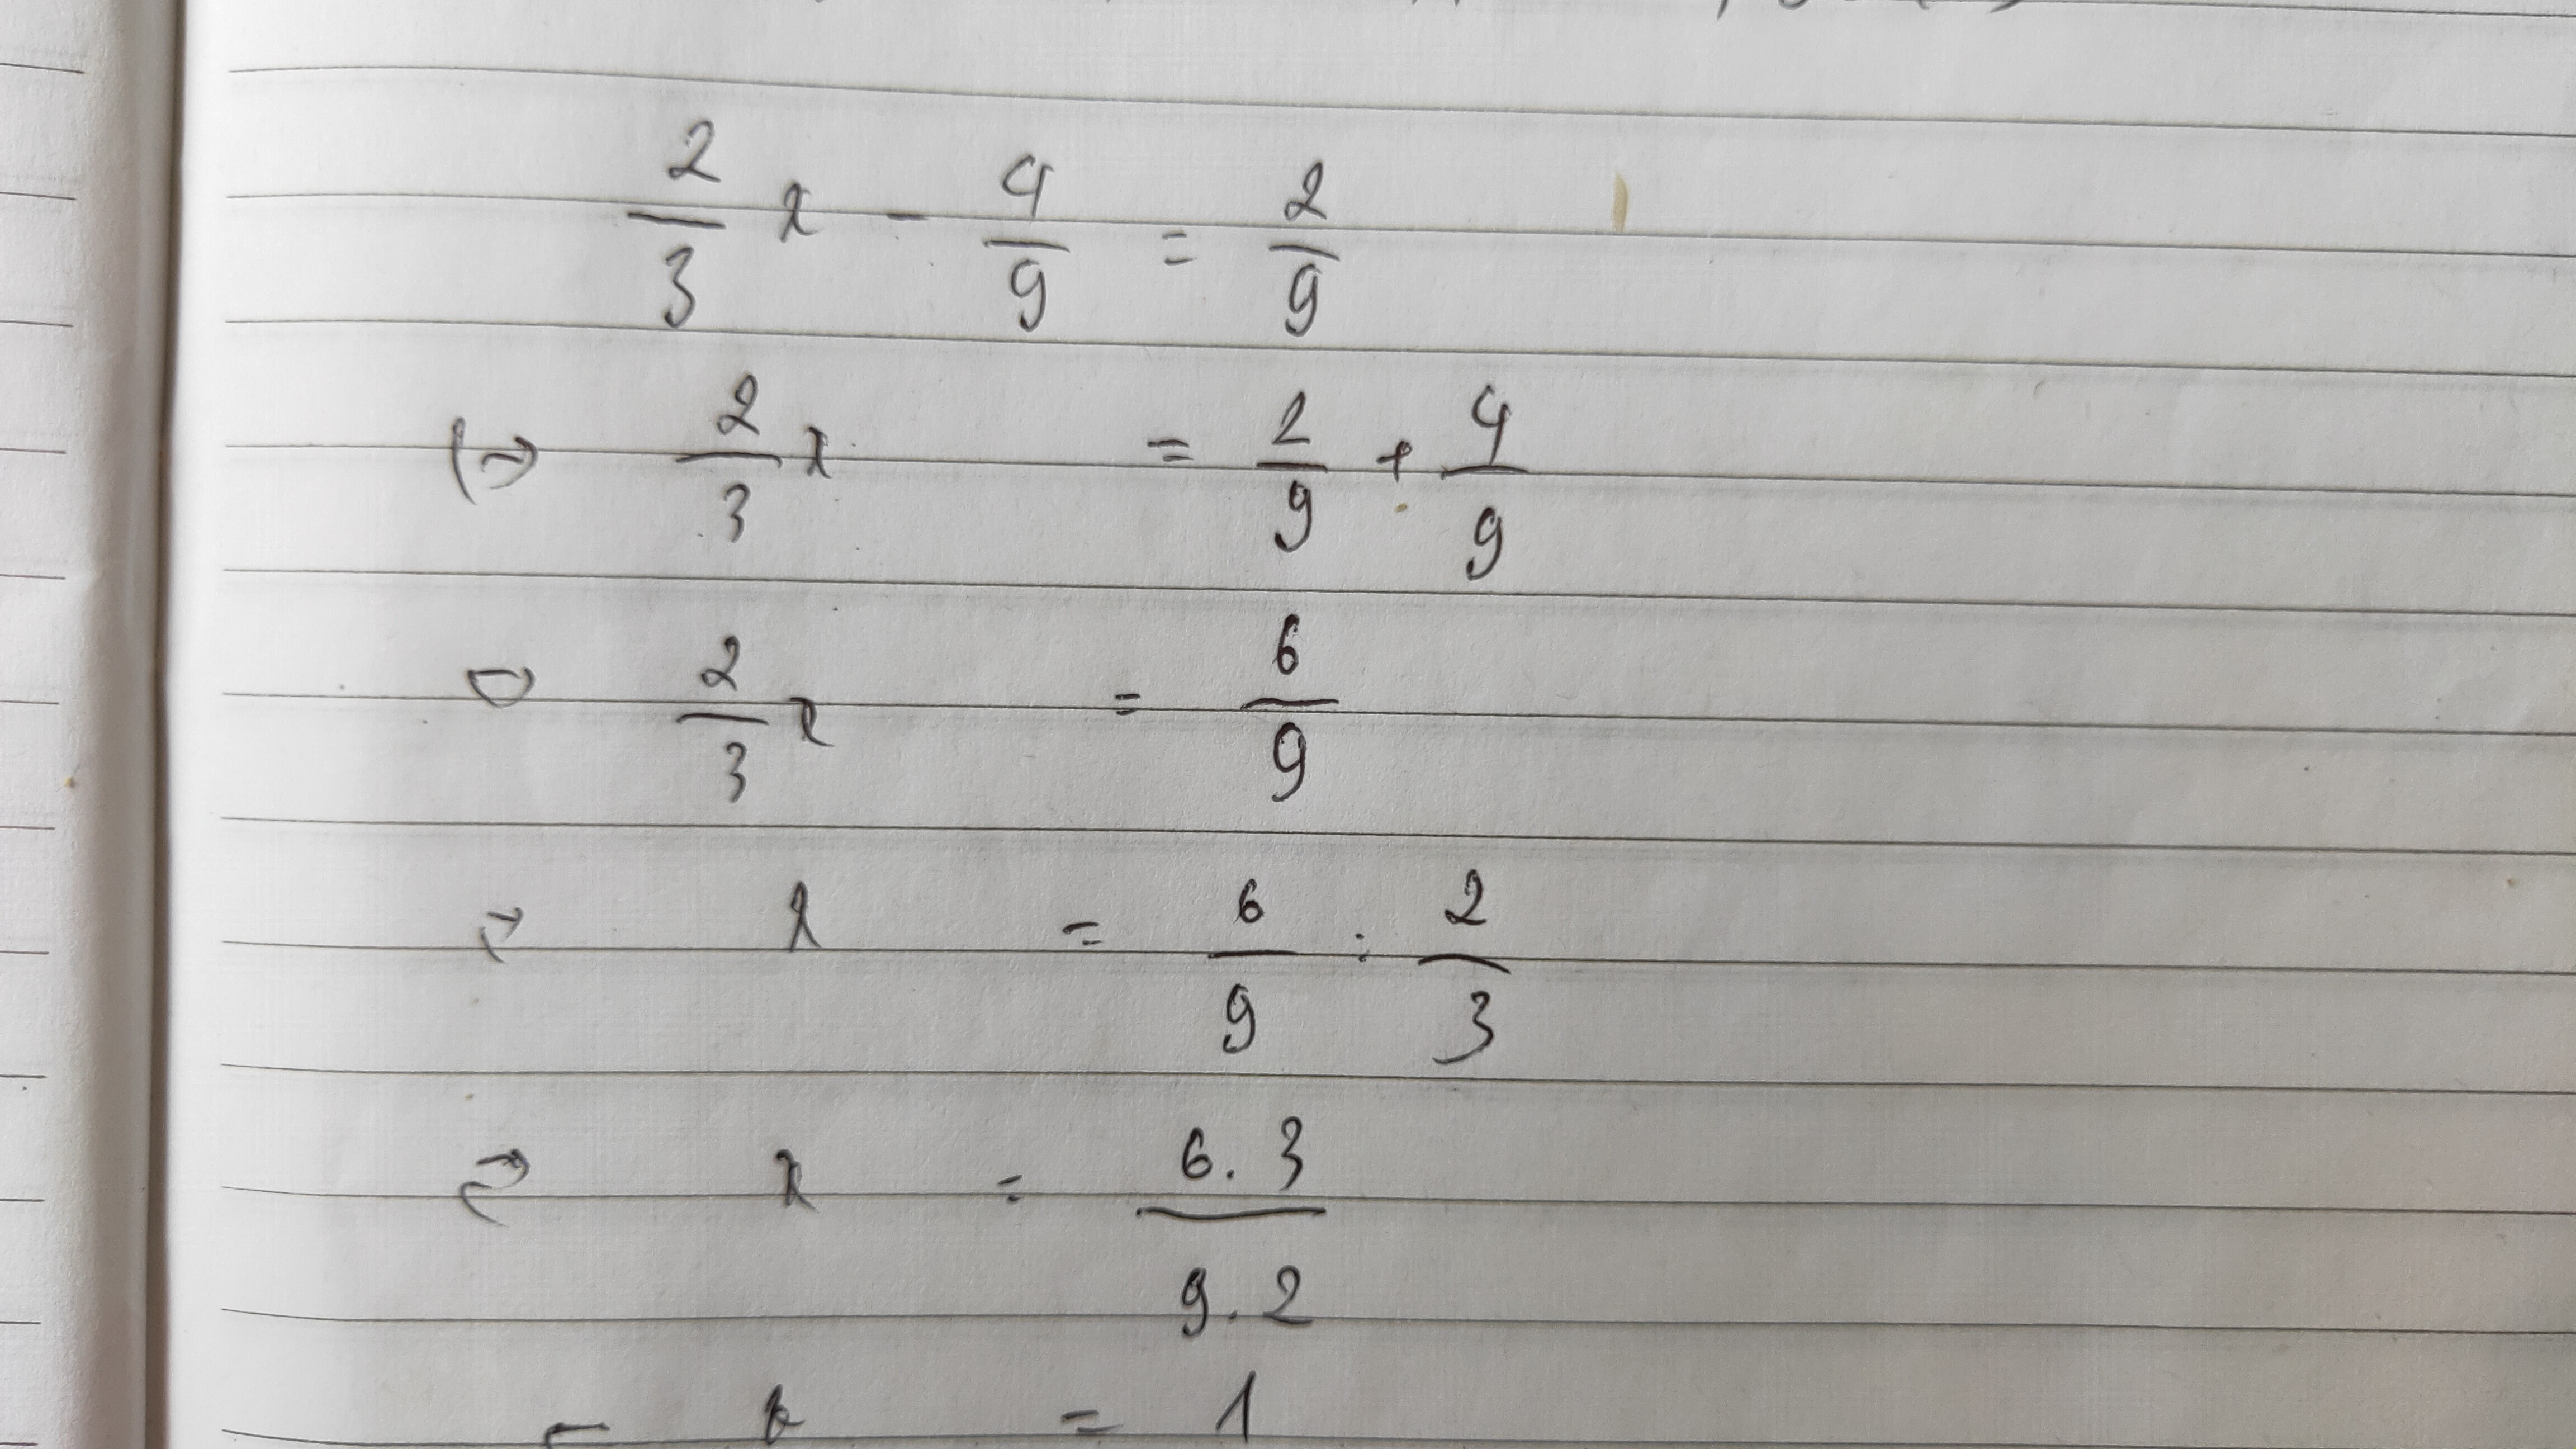 2/3 x - 4/9 = 2/9
⇔ 2/3 x = 2/9 + 4/9
⇔ 2/3 x = 6/9
⇔ x = 6/9 : 2/3
⇔ x = 6.3/9.2
x = 1